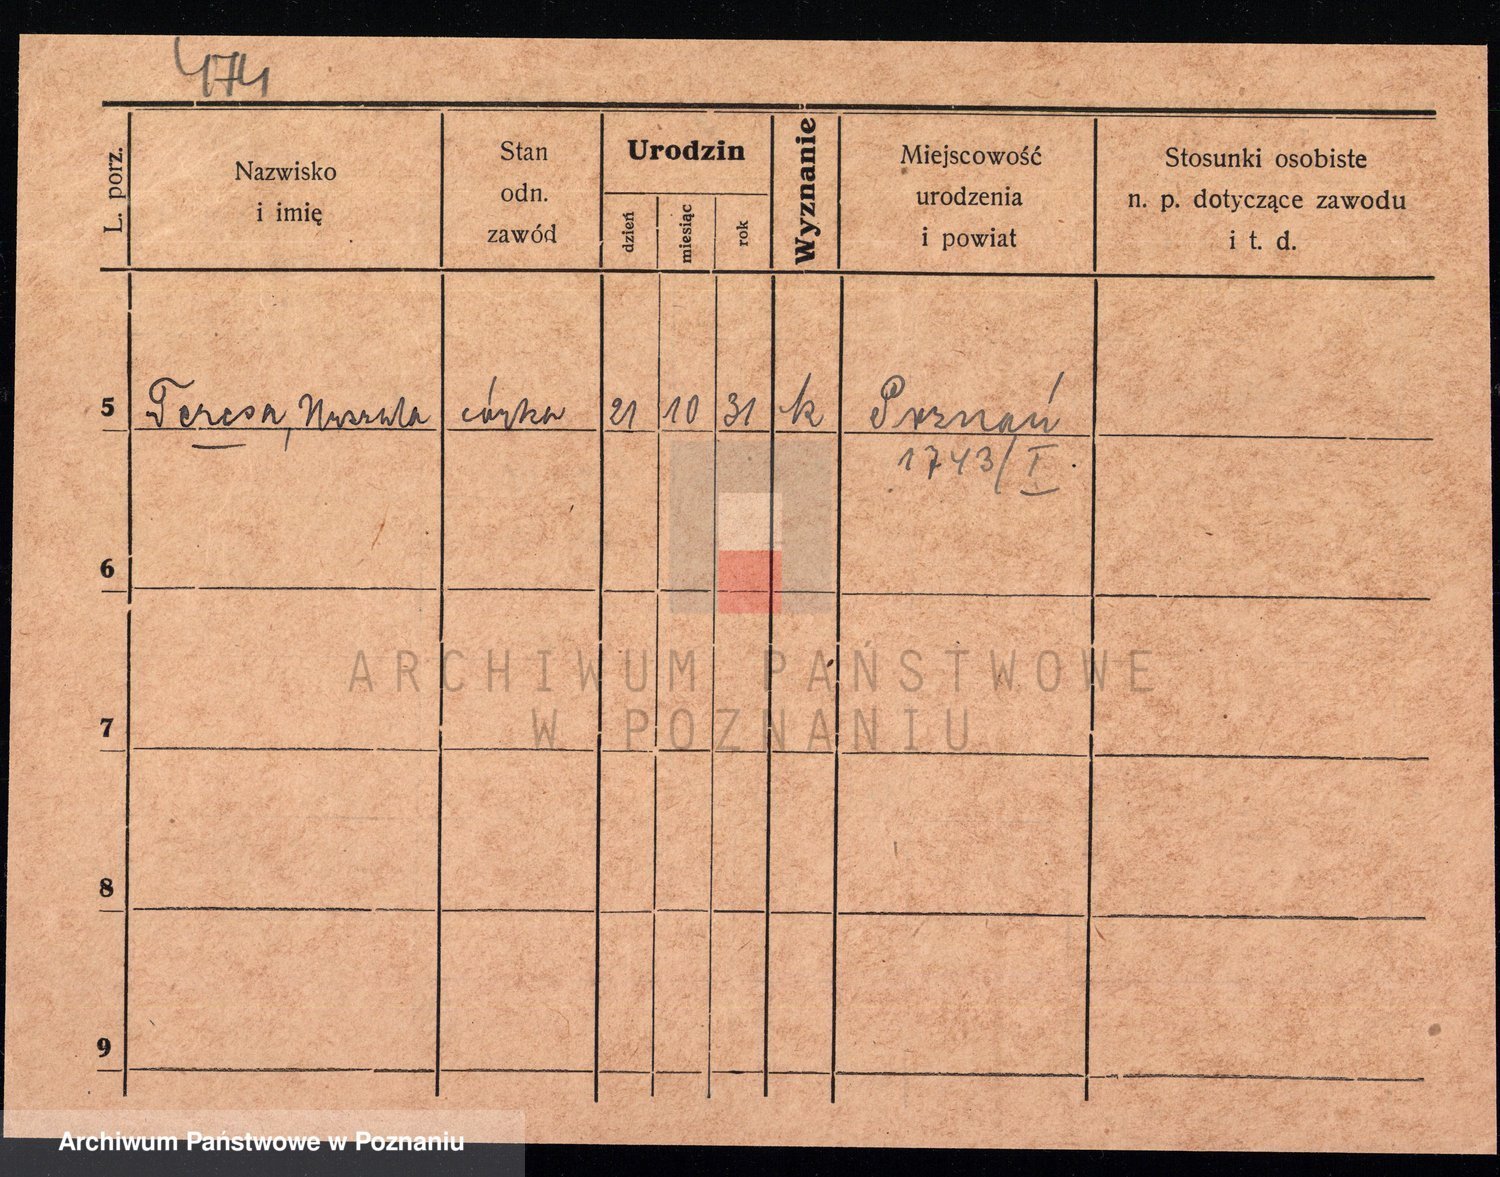 474
L. porz.
Nazwisko
i imię
Stan
odn.
zawód
Urodzin
dzień
miesiąc
rok
Wyznanie
Miejscowość
urodzenia
i powiat
Stosunki osobiste
n. p. dotyczące zawodu
i t. d.
5 Teresa, Urszula córka 21 10 31 k Poznań
1743/I.
6
7
8
9
ARCHIWUM PAŃSTWOWE
W POZNANIU
Archiwum Państwowe w Poznaniu